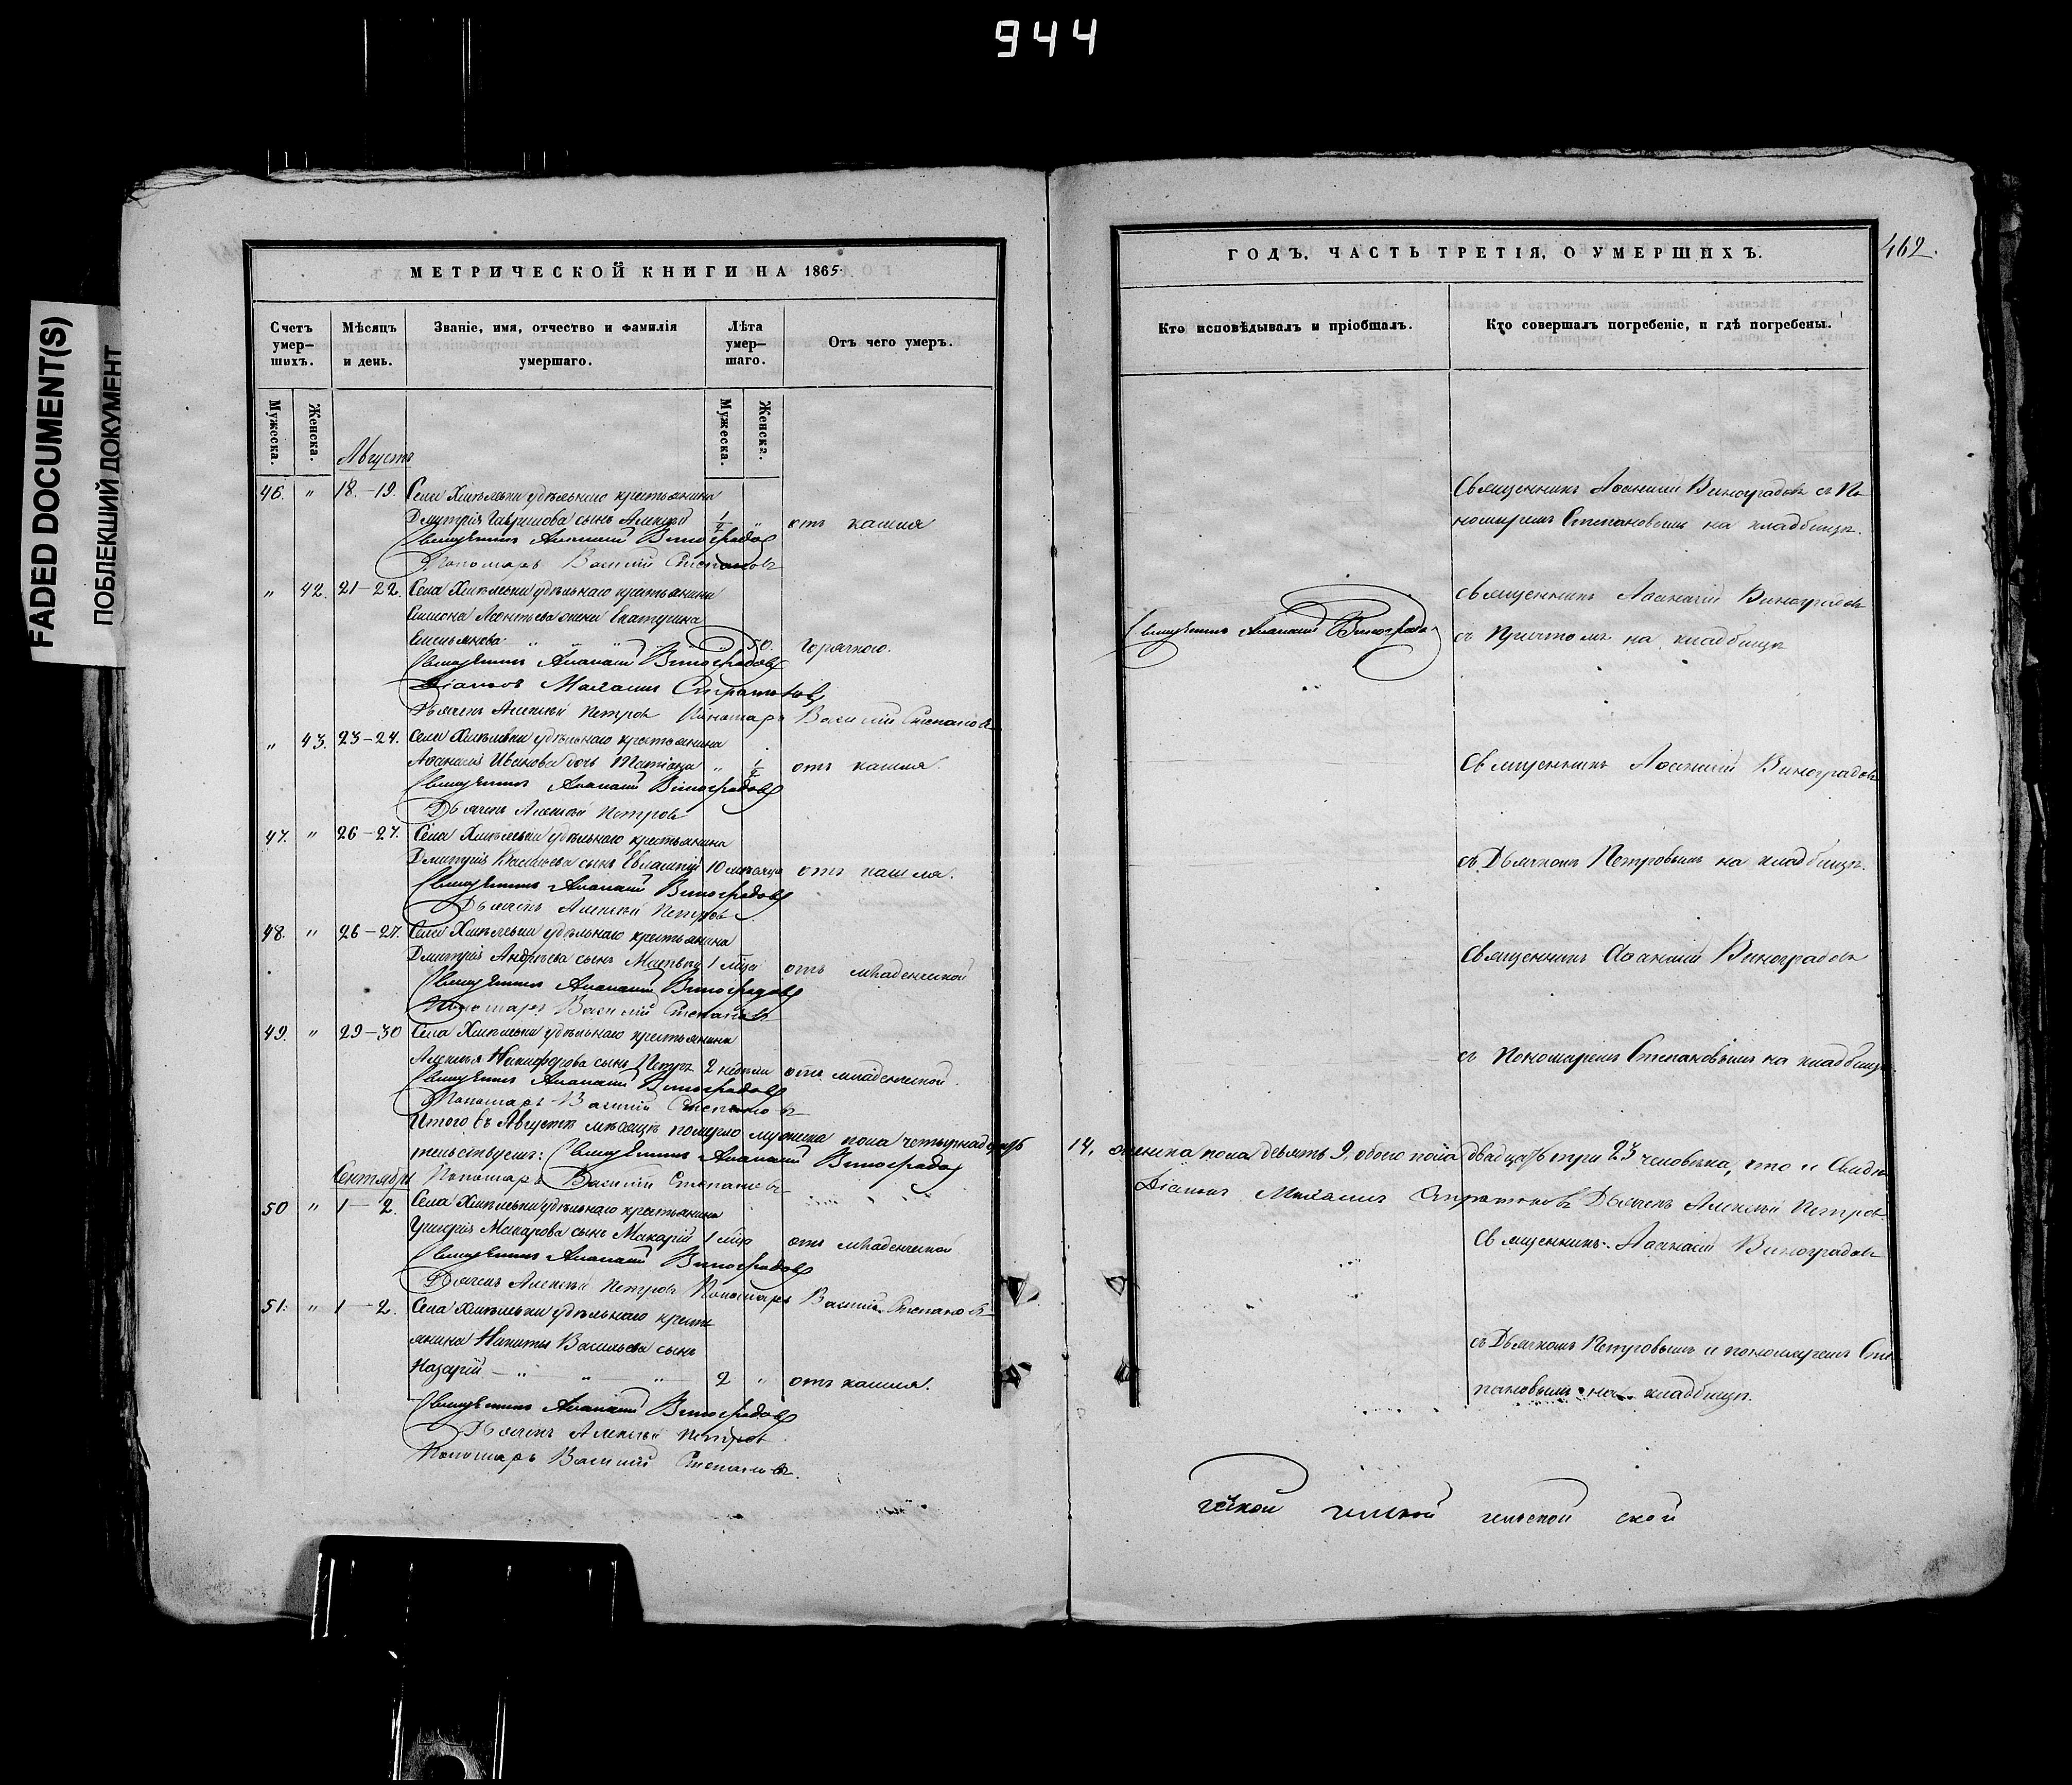 944
FADED DOCUMENT(S)
ПОБЛЕКШИЙ ДОКУМЕНТ
МЕТРИЧЕСКОЙ КНИГИ НА 1865
Счетъ умер-шихъ.
Мѣсяцъ и день.
Званіе, имя, отчество и фамилія умершаго.
Лѣта умер-шаго.
Отъ чего умеръ.
Мужеска.
Женска.
Мужеска.
Женска.
Августъ
46. " 18.–19. Села удѣльнаго крестьянина
Дмитрія Гаврилова сынъ Алексѣй 1/2 " отъ кашля
Священникъ Аѳанасій Виноградовъ
Пономарь Василій Степановъ
" 42. 21–22. Села удѣльнаго крестьянина
Леонтьева жена Екатерина
Емельянова " " " 50. Горячкою.
Священникъ Аѳанасій Виноградовъ
Діаконъ
Дьячекъ Алексѣй Петровъ Пономарь Василій Степановъ
" 43. 23–24. Села удѣльнаго крестьянина
Аѳанасія Иванова дочь Татіана " 1/2 отъ кашля.
Священникъ Аѳанасій Виноградовъ
Дьячекъ Алексѣй Петровъ
47. " 26–27. Села удѣльнаго крестьянина
Дмитрія сынъ Евлампій 10 мѣсяца отъ кашля.
Священникъ Аѳанасій Виноградовъ
Дьячекъ Алексѣй Петровъ
48. " 26–27. Села удѣльнаго крестьянина
Дмитрія Андреева сынъ Матвѣй 1 мѣся отъ младенческой
Священникъ Аѳанасій Виноградовъ
Пономарь Василій Степановъ
49. " 29–30 Села удѣльнаго крестьянина
Алексѣя Никифорова сынъ Петръ 2 недѣли отъ младенческой.
Священникъ Аѳанасій Виноградовъ
Пономарь Василій Степановъ
Итого въ Августѣ мѣсяцѣ померло мужеска пола четырнадцать
тельствуемъ: Священникъ Аѳанасій Виноградовъ
Сентябрь Пономарь Василій Степановъ
50 " 1–2. Села удѣльнаго крестьянина
Григорія Макарова сынъ Макарій 1 мѣся отъ младенческой
Священникъ Аѳанасій Виноградовъ
Дьячекъ Алексѣй Петровъ Пономарь Василій Степановъ
51. " 1–2. Села удѣльнаго кресть
янина Никиты Васильева сынъ
Назарій – " " " 2 " отъ кашля.
Священникъ Аѳанасій Виноградовъ
Дьячекъ Алексѣй Петровъ
Пономарь Василій Степановъ.
ГОДЪ, ЧАСТЬ ТРЕТІЯ, О УМЕРШИХЪ.
462.
Кто исповѣдывалъ и пріобщалъ.
Кто совершалъ погребеніе, и гдѣ погребены.
Священникъ Аѳанасій Виноградовъ съ По
номаремъ Степановымъ на кладбищѣ.
Священникъ Аѳанасій Виноградовъ
Священникъ Аѳанасій Виноградовъ
съ Причтомъ на кладбищѣ
Священникъ Аѳанасій Виноградовъ
съ Дьячкомъ Петровымъ на кладбищѣ.
Священникъ Аѳанасій Виноградовъ
съ Пономаремъ Степановымъ на кладбищѣ
14, женска пола девять 9, обоего пола двадцать три 23 человѣка, что и свидѣ
Діаконъ Дьячекъ Алексѣй Петровъ
Священникъ Аѳанасій Виноградовъ
съ Дьячкомъ Петровымъ и пономаремъ Сте
пановымъ на кладбищѣ.
ской